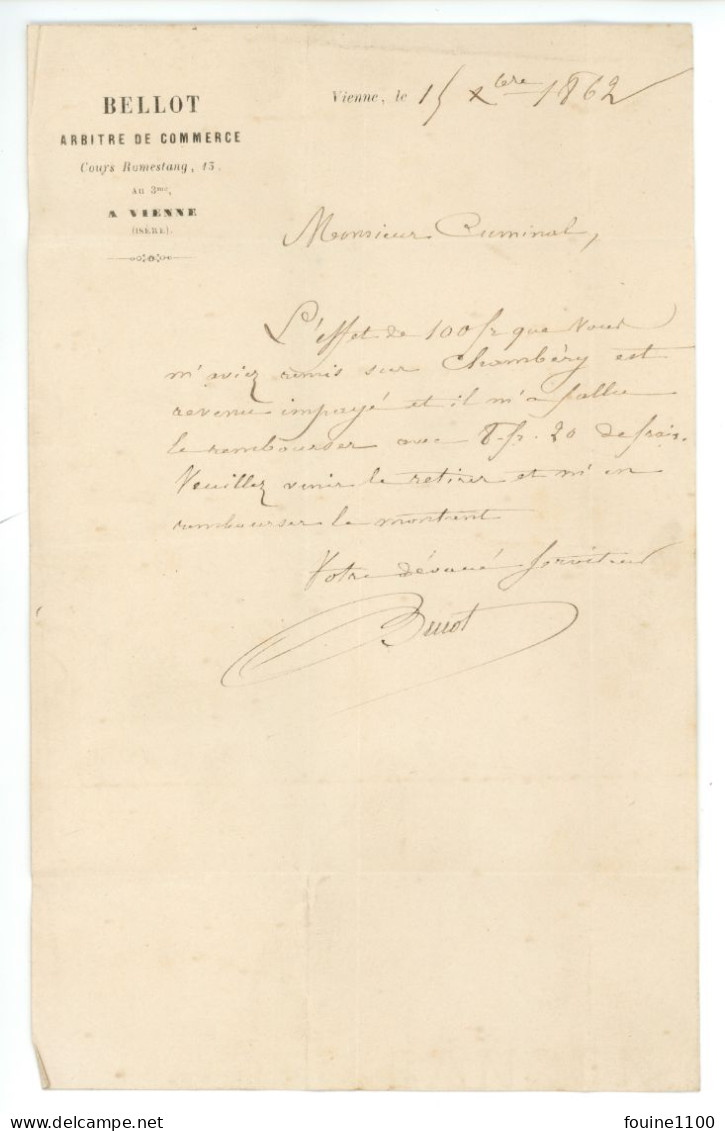 BELLOT
ARBITRE DE COMMERCE
Cours Romestang, 13.
AU 3me,
A VIENNE
(ISÈRE).
Vienne, le 15 Xbre 1862
Monsieur Cuminal,
L'effet de 100 fr que vous
m'aviez remis sur Chambéry est
revenu impayé et il m'a fallu
le rembourser avec 8 fr. 20 de frais.
Veuillez venir le retirer et m'en
rembourser le montant
Votre dévoué serviteur
Bellot
fouine1100